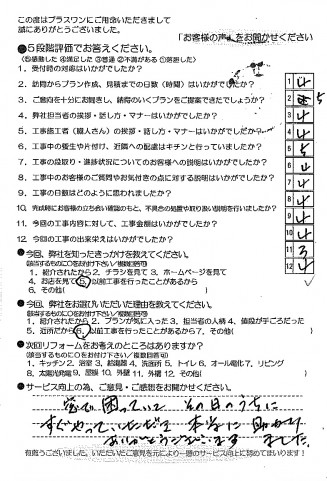 この度はプラスワンにご用命いただきまして
誠にありがとうございます。
「お客様の声」をお聞かせください
●5段階評価でお答えください。
(⑤感動した ④満足した ③普通 ②不満がある ①落胆した)
1. 受付時の対応はいかがでしたか?
2. 訪問からプラン作成、見積までの日数（時間）はいかがでしたか?
3. ご意向を十分にお聞きし、納得のいくプランをご提案できたでしょうか?
4. 弊社担当者の挨拶・話し方・マナーはいかがでしたか?
5. 工事施工者（職人さん）の挨拶・話し方・マナーはいかがでしたか?
6. 工事中の養生や片付け、近隣への配慮はキチンと行っていましたか?
7. 工事の段取り・進捗状況についてのお客様への説明はいかがでしたか?
8. 工事中のお客様のご質問やお気付きの点に対する説明はいかがでしたか?
9. 工事の日数はどのように思われましたか?
10. 完成時にお客様の立ち会い確認のもと、不具合の処置や取り扱い説明を行いましたか?
11. 今回の工事内容に対して、工事金額はいかがでしたか?
12. 今回の工事の出来栄えはいかがでしたか?
1 4
2 5
3 4
4 4
5 4
6 5
7 4
8 4
9 4
10 4
11 3
12 4
●今回、弊社を知ったきっかけを教えてください。
(該当するものに○をお付け下さい／複数回答可)
1. 紹介されたから 2. チラシを見て 3. ホームページを見て
4. お店を見て 5. 以前工事を行ったことがあるから
6. その他(
●今回、弊社をお選びいただいた理由を教えてください。
(該当するものに○をお付け下さい／複数回答可)
1. 紹介されたから 2. プランが気に入った 3. 担当者の人柄 4. 値段が手ごろだった
5. 近所だから 6. 以前工事を行ったことがあるから 7. その他(
●次回リフォームをお考えのところはありますか?
(該当するものに○をお付け下さい／複数回答可)
1. キッチン 2. 浴室 3. 給湯器 4. 洗面所 5. トイレ 6. オール電化 7. リビング
8. 太陽光発電 9. 屋根 10. 外壁 11. 外構 12. その他(
●サービス向上の為、ご意見・ご感想をお聞かせください。
困っていて その日のうちに
すぐやっていただき 本当に 助かり
ありがとうございます ました。
有難うございました。いただいたご意見を元により一層のサービス向上に努めてまいります!